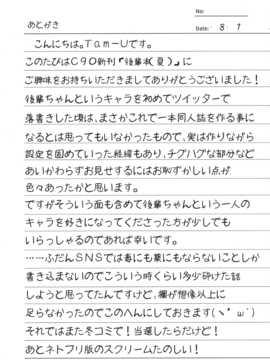 No:
Date: ・8・1
あとがき
こんにちは。Tam-Uです。
このたびはC90新刊『後輩本(夏)』に
ご興味をお持ちいただきましてありがとうございました!
後輩ちゃんというキャラを初めてツイッターで
落書きした頃は、まさかこれで一本同人誌を作る事に
なるとは思ってもいなかったもので、実は作りながら
設定を固めていった経緯もあり、チグハグな部分など
あいかわらずお見せするにはお恥ずかしい点が
色々あったかと思います。
ですがそういう面も含めて後輩ちゃんという一人の
キャラを好きになってくださった方が少しでも
いらっしゃるのであれば幸いです。
……ふだんSNSでは毒にも薬にもならないことしか
書き込まないのでこういう時くらい多少砕けた話
しようと思ってたんですけど、欄が想像以上に
足らなかったのでこのへんにしておきます(ヽ´ω`)
それではまた冬コミで!当選したらだけど!
あとネトフリ版のスクリームたのしい!